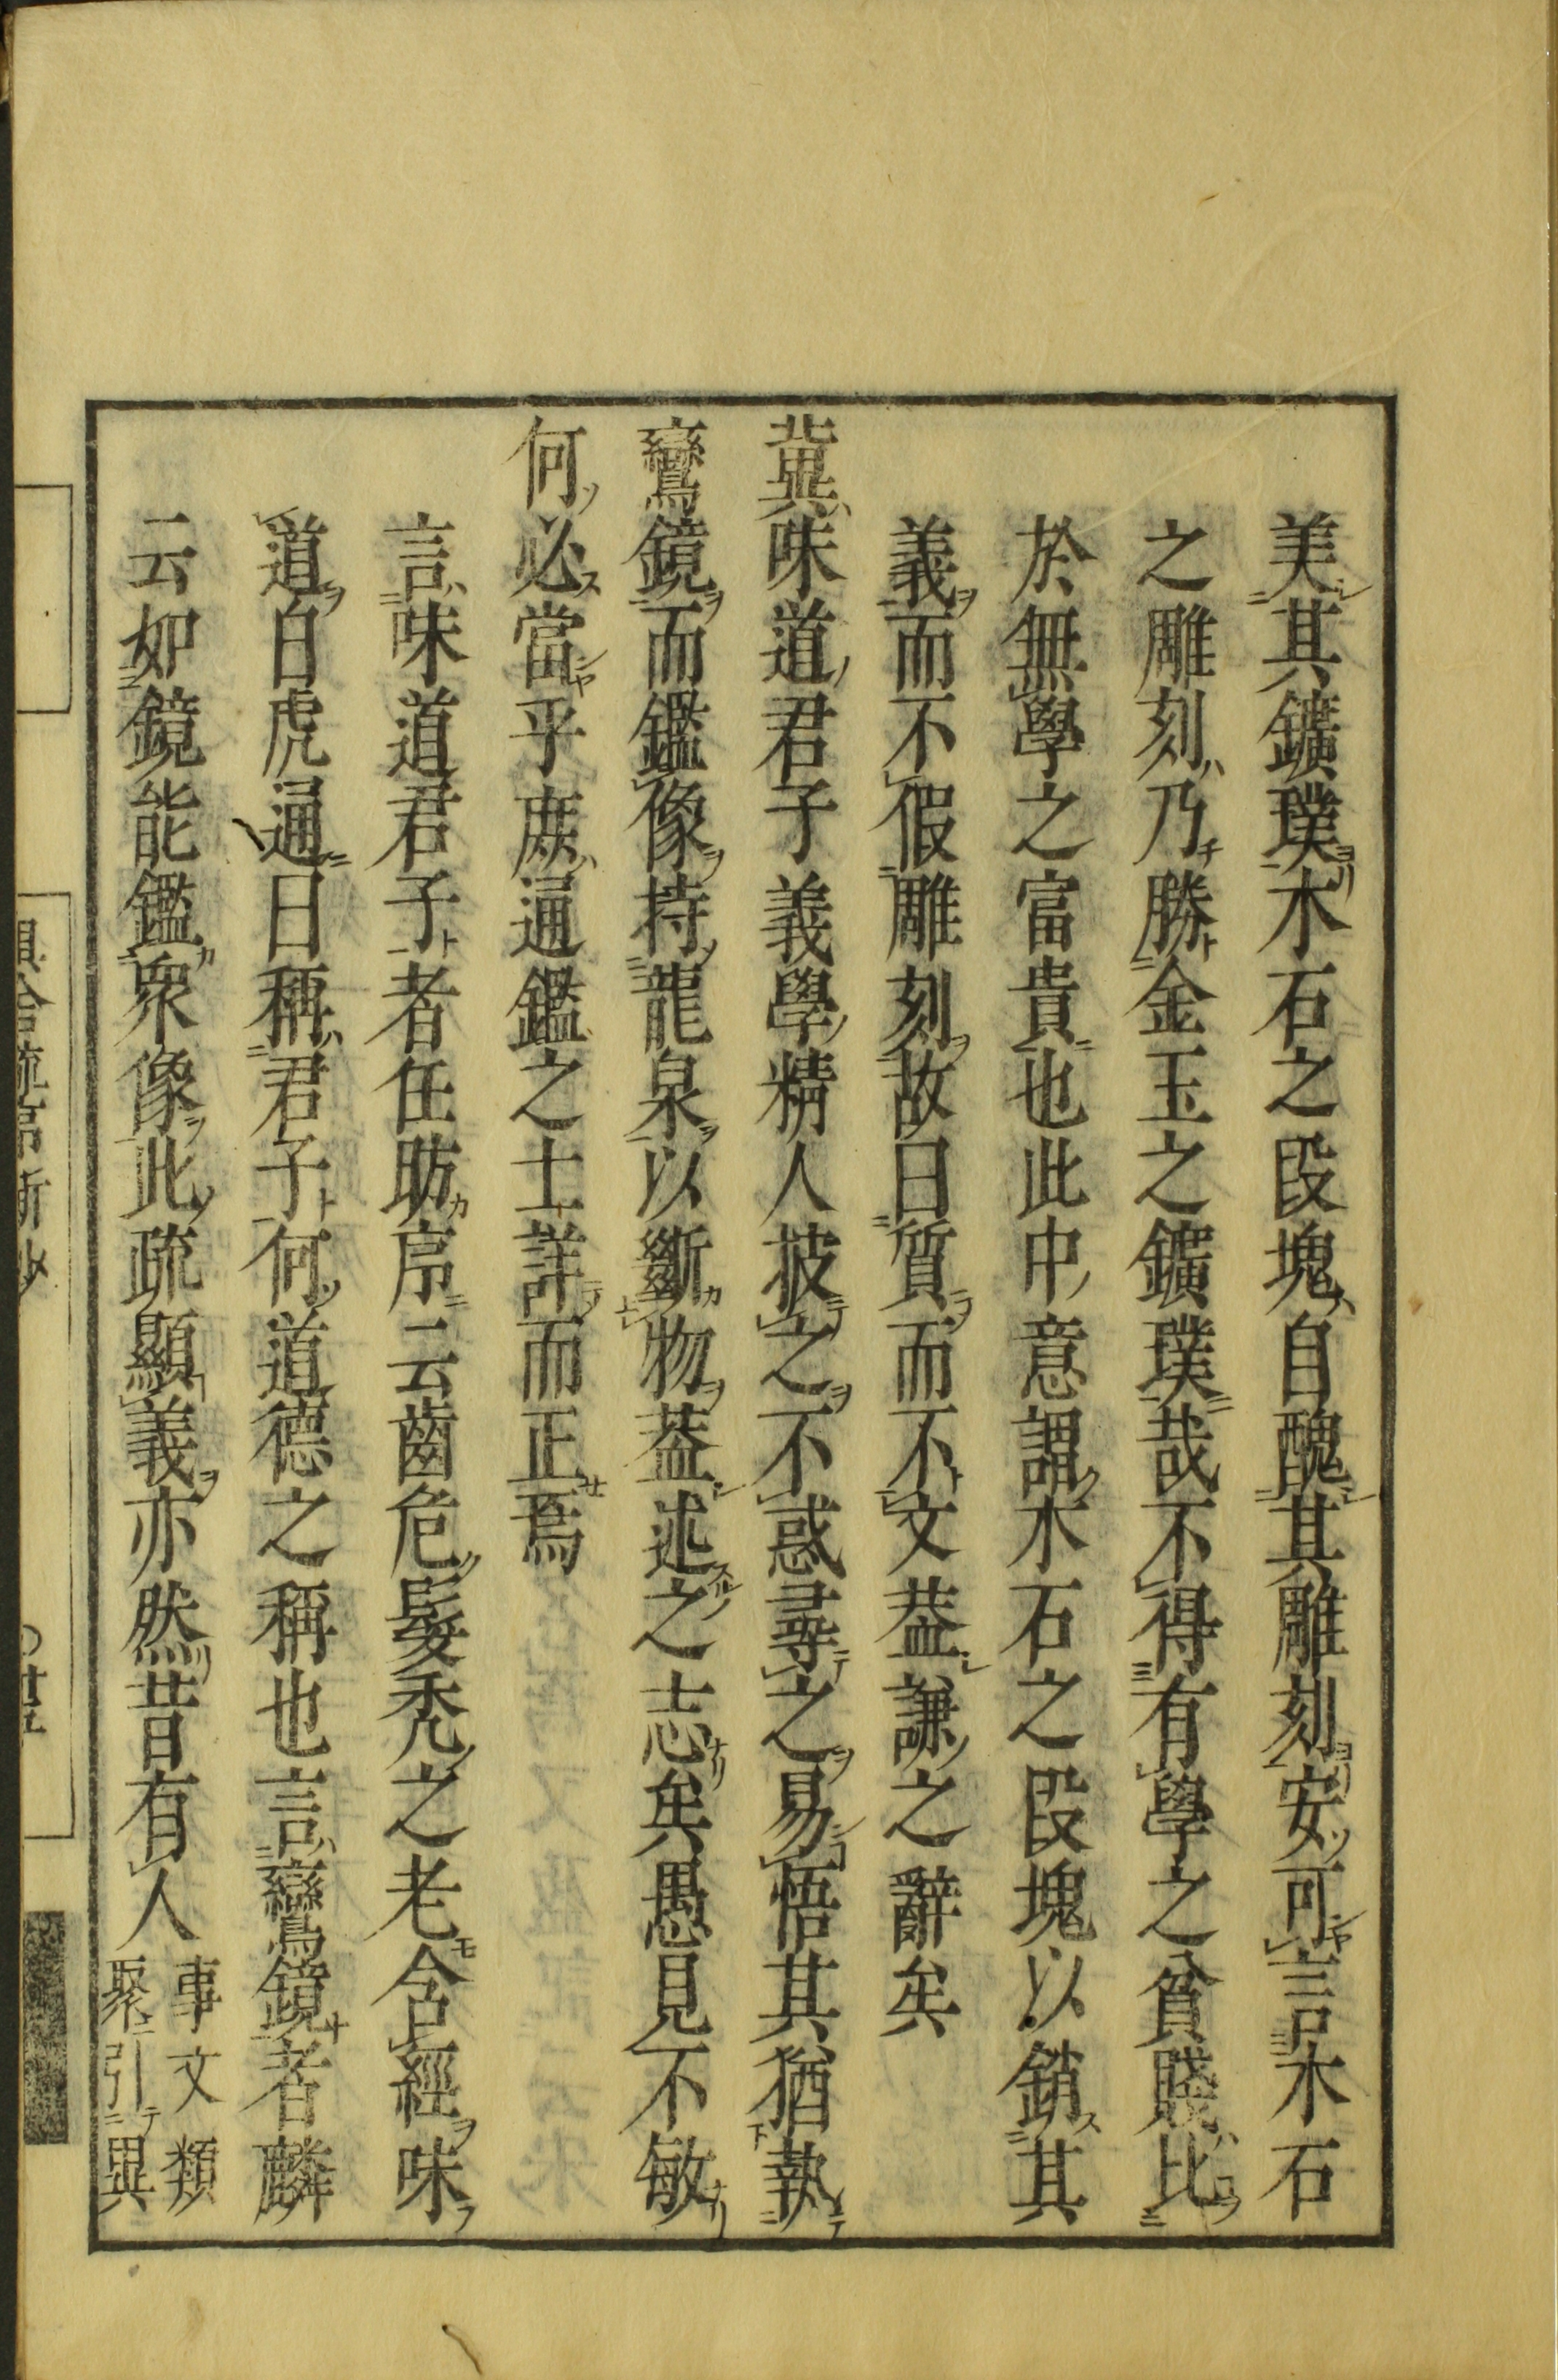 美其鑛璞木石之段塊自醜其雕刻安可言木石
之雕刻乃勝金玉之鑛璞哉不得有學之貧賤比
於無學之富貴也此中意謂木石之段塊以銷其
義而不假雕刻故曰質而不文葢謙之辭矣
冀味道君子義學精人披之不惑尋之易悟其猶執
鸞鏡而鑑像持龍泉以斷物葢述之志矣愚見不敏
何必當乎庶通鑑之士詳而正焉
言味道君子者任昉序云齒危髮秃之老含經味
道白虎通曰稱君子何道德之稱也言鸞鏡者麟
云如鏡能鑑衆像此疏顯義亦然昔有人事文類
聚引異